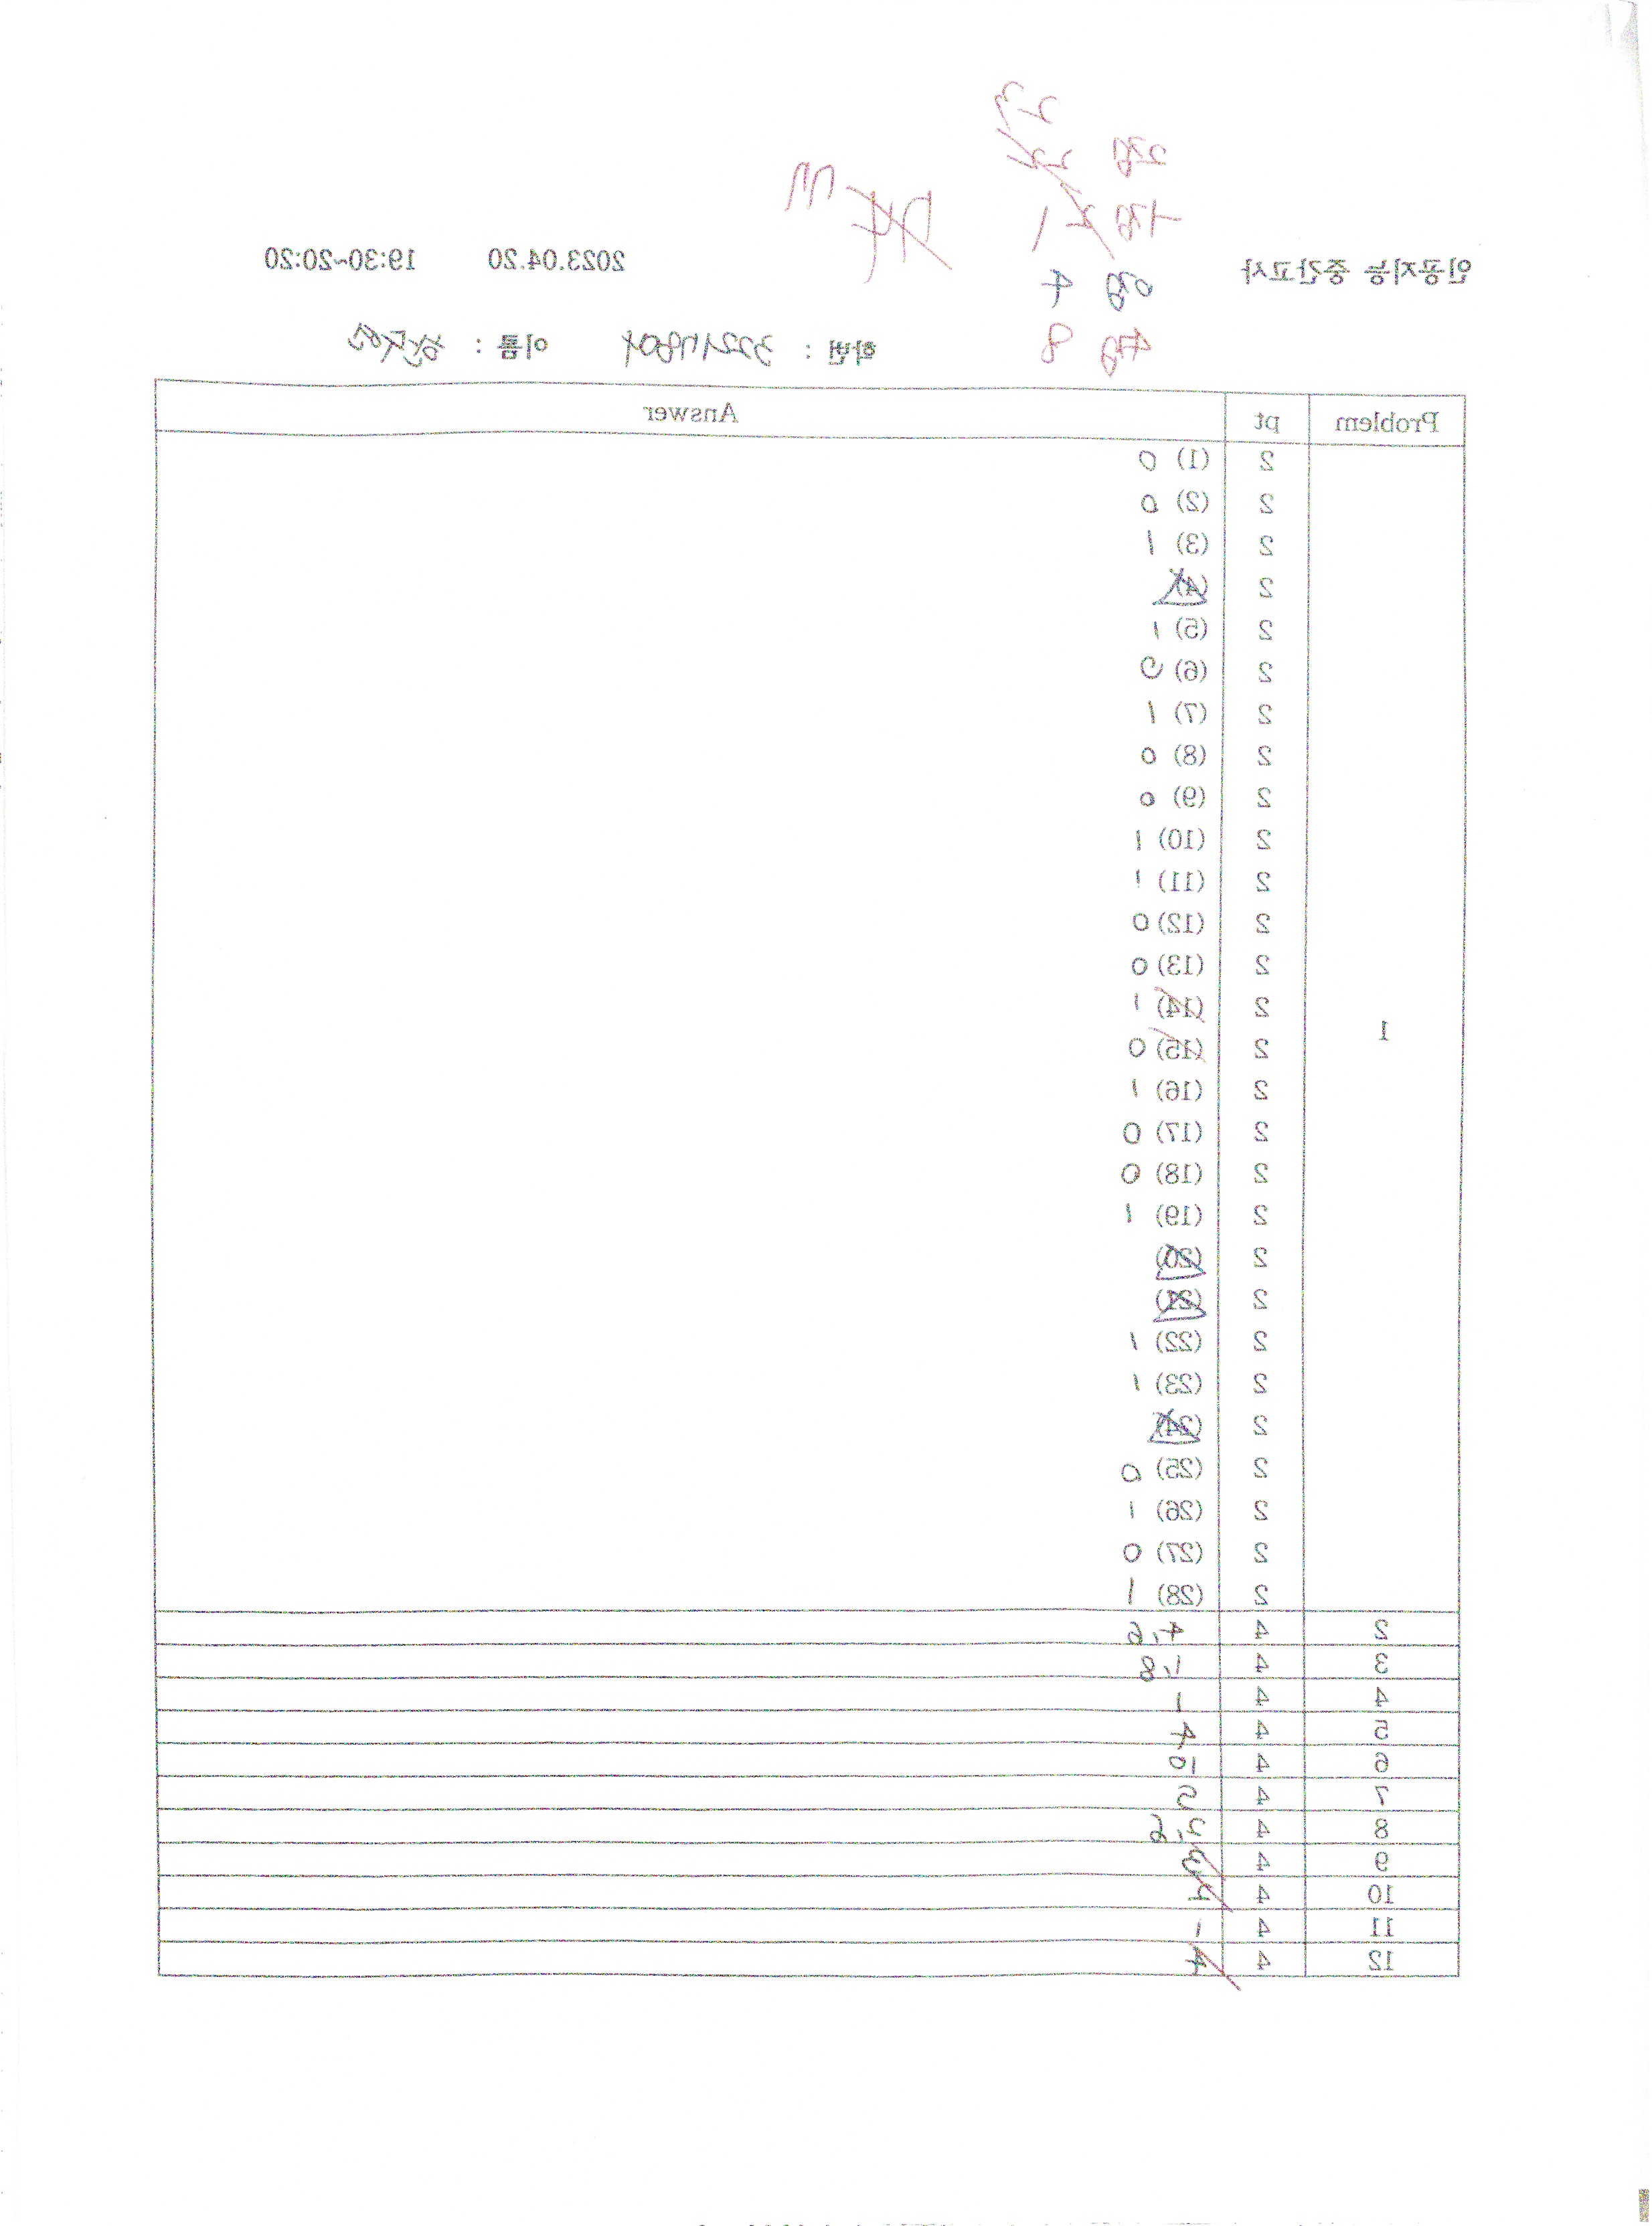 23
2점 22
1점 2 1
0점 4
4점 8
74 77
인공지능 중간고사 2023.04.20 19:30~20:20
학번 : 32217804 이름 :
Problem pt Answer
1
2 (1) 0
2 (2) 0
2 (3) 1
2 (4)
2 (5) 1
2 (6) 0
2 (7) 1
2 (8) 0
2 (9) 0
2 (10) 1
2 (11) 1
2 (12) 0
2 (13) 0
2 (14) 1
2 (15) 0
2 (16) 1
2 (17) 0
2 (18) 0
2 (19) 1
2 (20)
2 (21)
2 (22) 1
2 (23) 1
2 (24)
2 (25) 0
2 (26) 1
2 (27) 0
2 (28) 1
2 4 4, 6
3 4 1, 8
4 4 1
5 4 4
6 4 10
7 4 2
8 4 2, 6
9 4 3
10 4 4
11 4 1
12 4 4